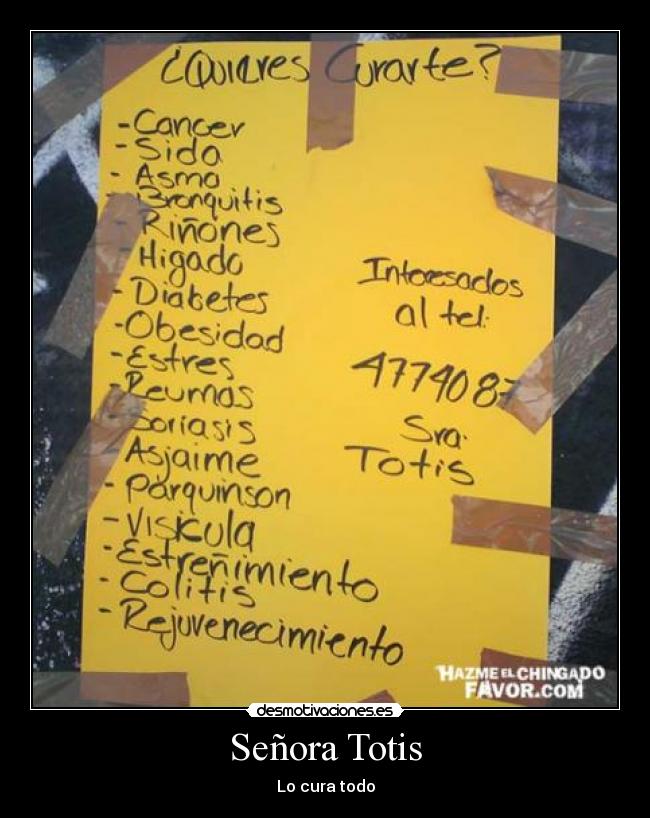 ¿Quieres Curarte?
- Cancer
- Sida
- Asma
- Bronquitis
- Riñones
- Higado
- Diabetes
- Obesidad
- Estres
- Reumas
- Soriasis
Asjaime
- Parquinson
- Visicula
- Estreñimiento
- Colitis
- Rejuvenecimiento
Interesados
al tel:
4774087
Sra.
Totis
HAZME EL CHINGADO
FAVOR.COM
desmotivaciones.es
Señora Totis
Lo cura todo